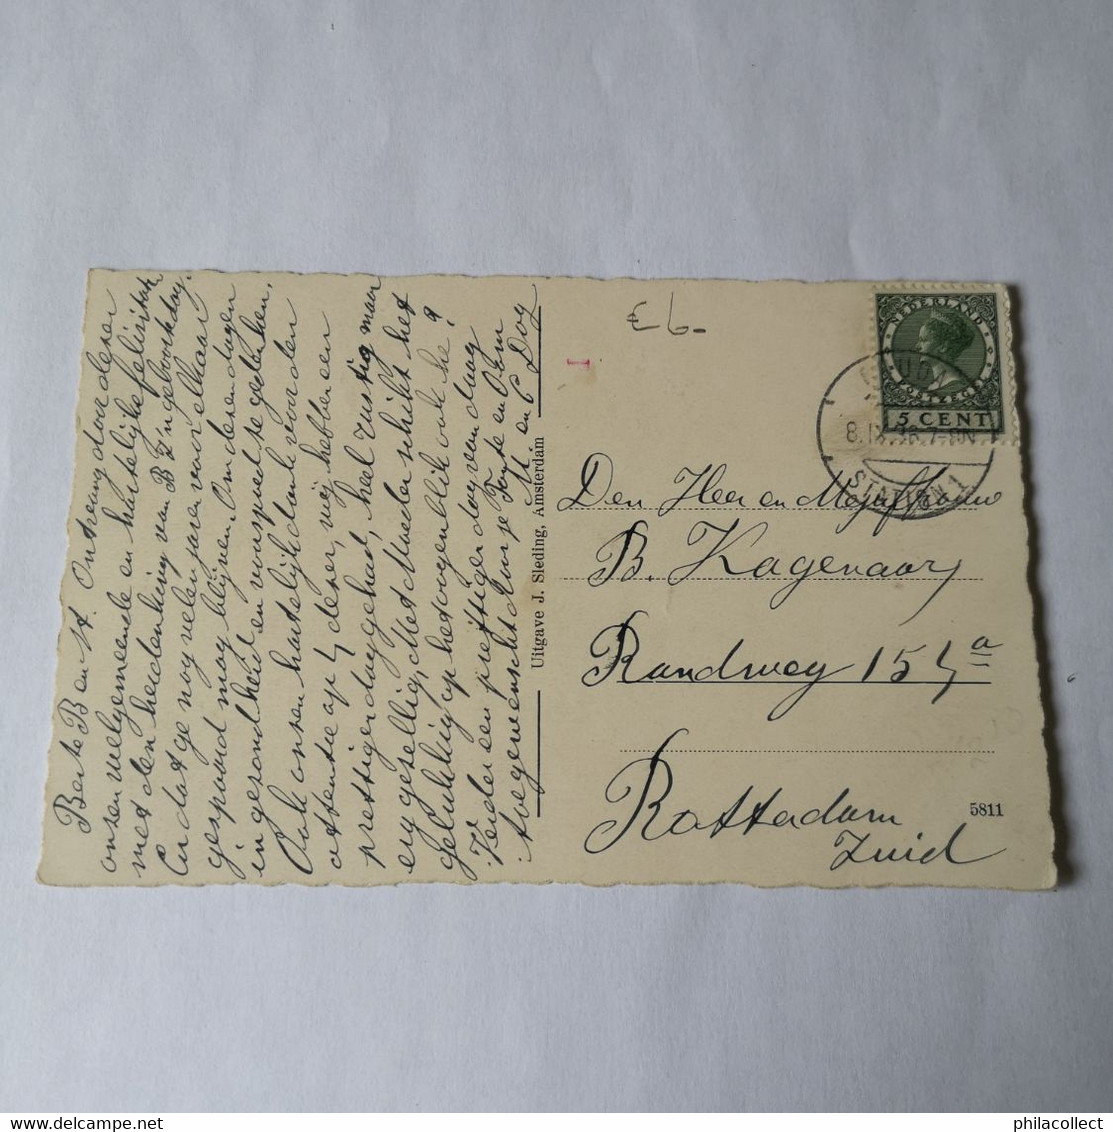 Beste B en H. Ontvang door deze
onzen welgemeende en hartelijke felicitatie
met den herdenking van B z'n geboortedag.
En dat ge nog vele jaren voor elkaar
gespaard mag blijven. Om deren dagen
in gezondheid en voorspoed te gedenken.
Ook onzen hartelijk dank voor den
attentie op 4 dezer, wij hebben een
prettigen dag gehad, heel rustig maar
erg gezellig. Met Moeder schikt het
gelukkig op het oogenblik ook he?
Verder een prettige dag van daag
toegewenscht Tante en Oom
M. en C
Uitgave J. Sleding, Amsterdam
€ 6-
1
NEDERLAND
POSTZEGEL
5 CENT
8.IX.36.7-8N
STATION 1
Den Heer en Mejuffrouw
B. Kagenaar
Randweg 154a
Rotterdam
Zuid
5811
philacollect